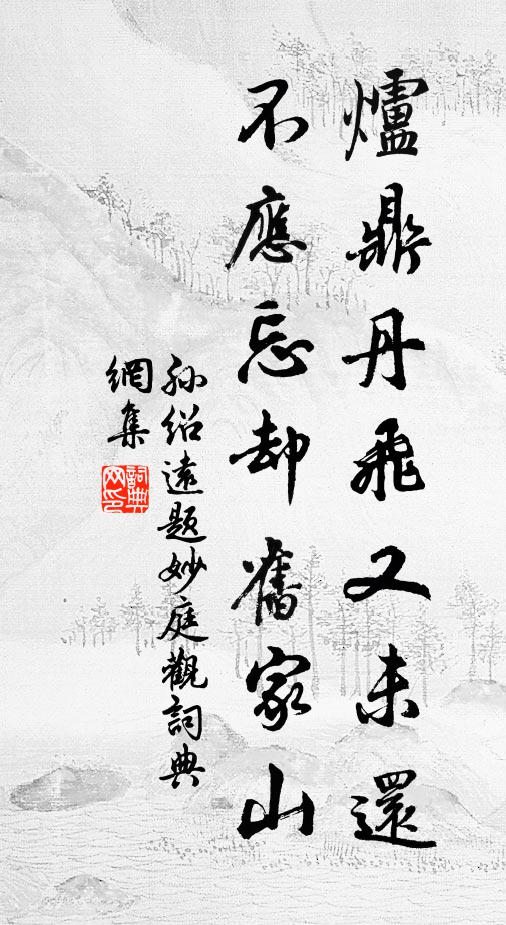 爐鼎丹飛又未還
不應忘却舊家山
孫紹遠題妙庭觀詞典
網集
詞典
网印